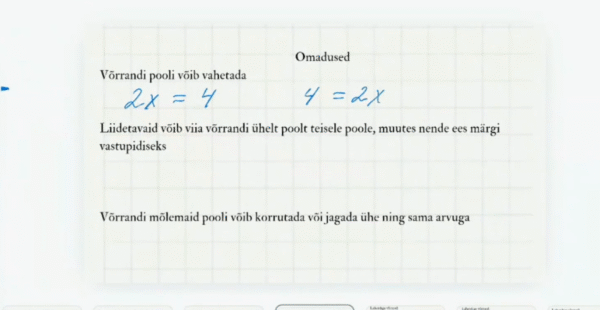 Omadused
Võrrandi pooli võib vahetada
2x = 4 4 = 2x
Liidetavaid võib viia võrrandi ühelt poolt teisele poole, muutes nende ees märgi
vastupidiseks
Võrrandi mõlemaid pooli võib korrutada või jagada ühe ning sama arvuga